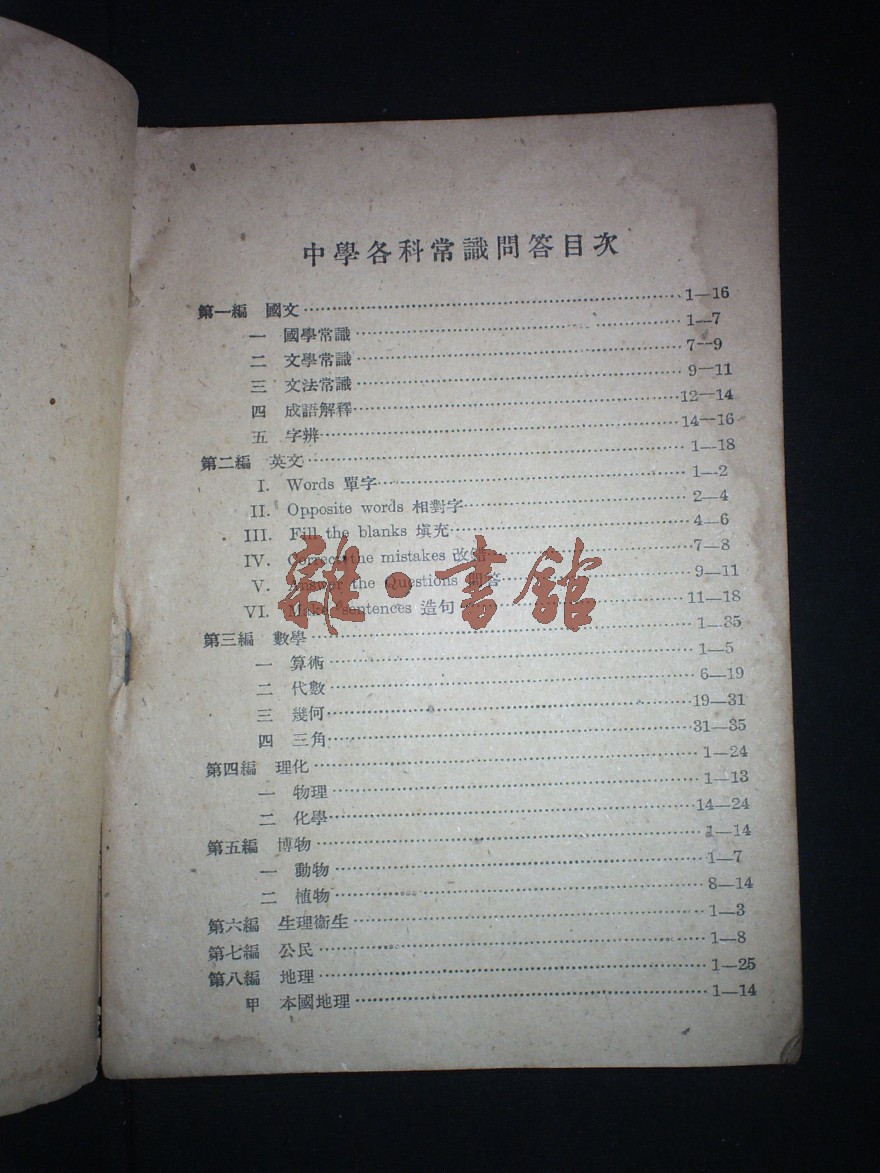 中學各科常識問答目次
第一編 國文……1—16
一 國學常識……1—7
二 文學常識……7—9
三 文法常識……9—11
四 成語解釋……12—14
五 字辨……14—16
第二編 英文……1—18
I. Words 單字……1—2
II. Opposite words 相對字……2—4
III. Fill the blanks 填充……4—6
IV. Correct the mistakes 改錯……7—8
V. Answer the Questions 問答……9—11
VI. Make sentences 造句……11—18
第三編 數學……1—35
一 算術……1—5
二 代數……6—19
三 幾何……19—31
四 三角……31—35
第四編 理化……1—24
一 物理……1—13
二 化學……14—24
第五編 博物……1—14
一 動物……1—7
二 植物……8—14
第六編 生理衞生……1—3
第七編 公民……1—8
第八編 地理……1—25
甲 本國地理……1—14
雜·書館